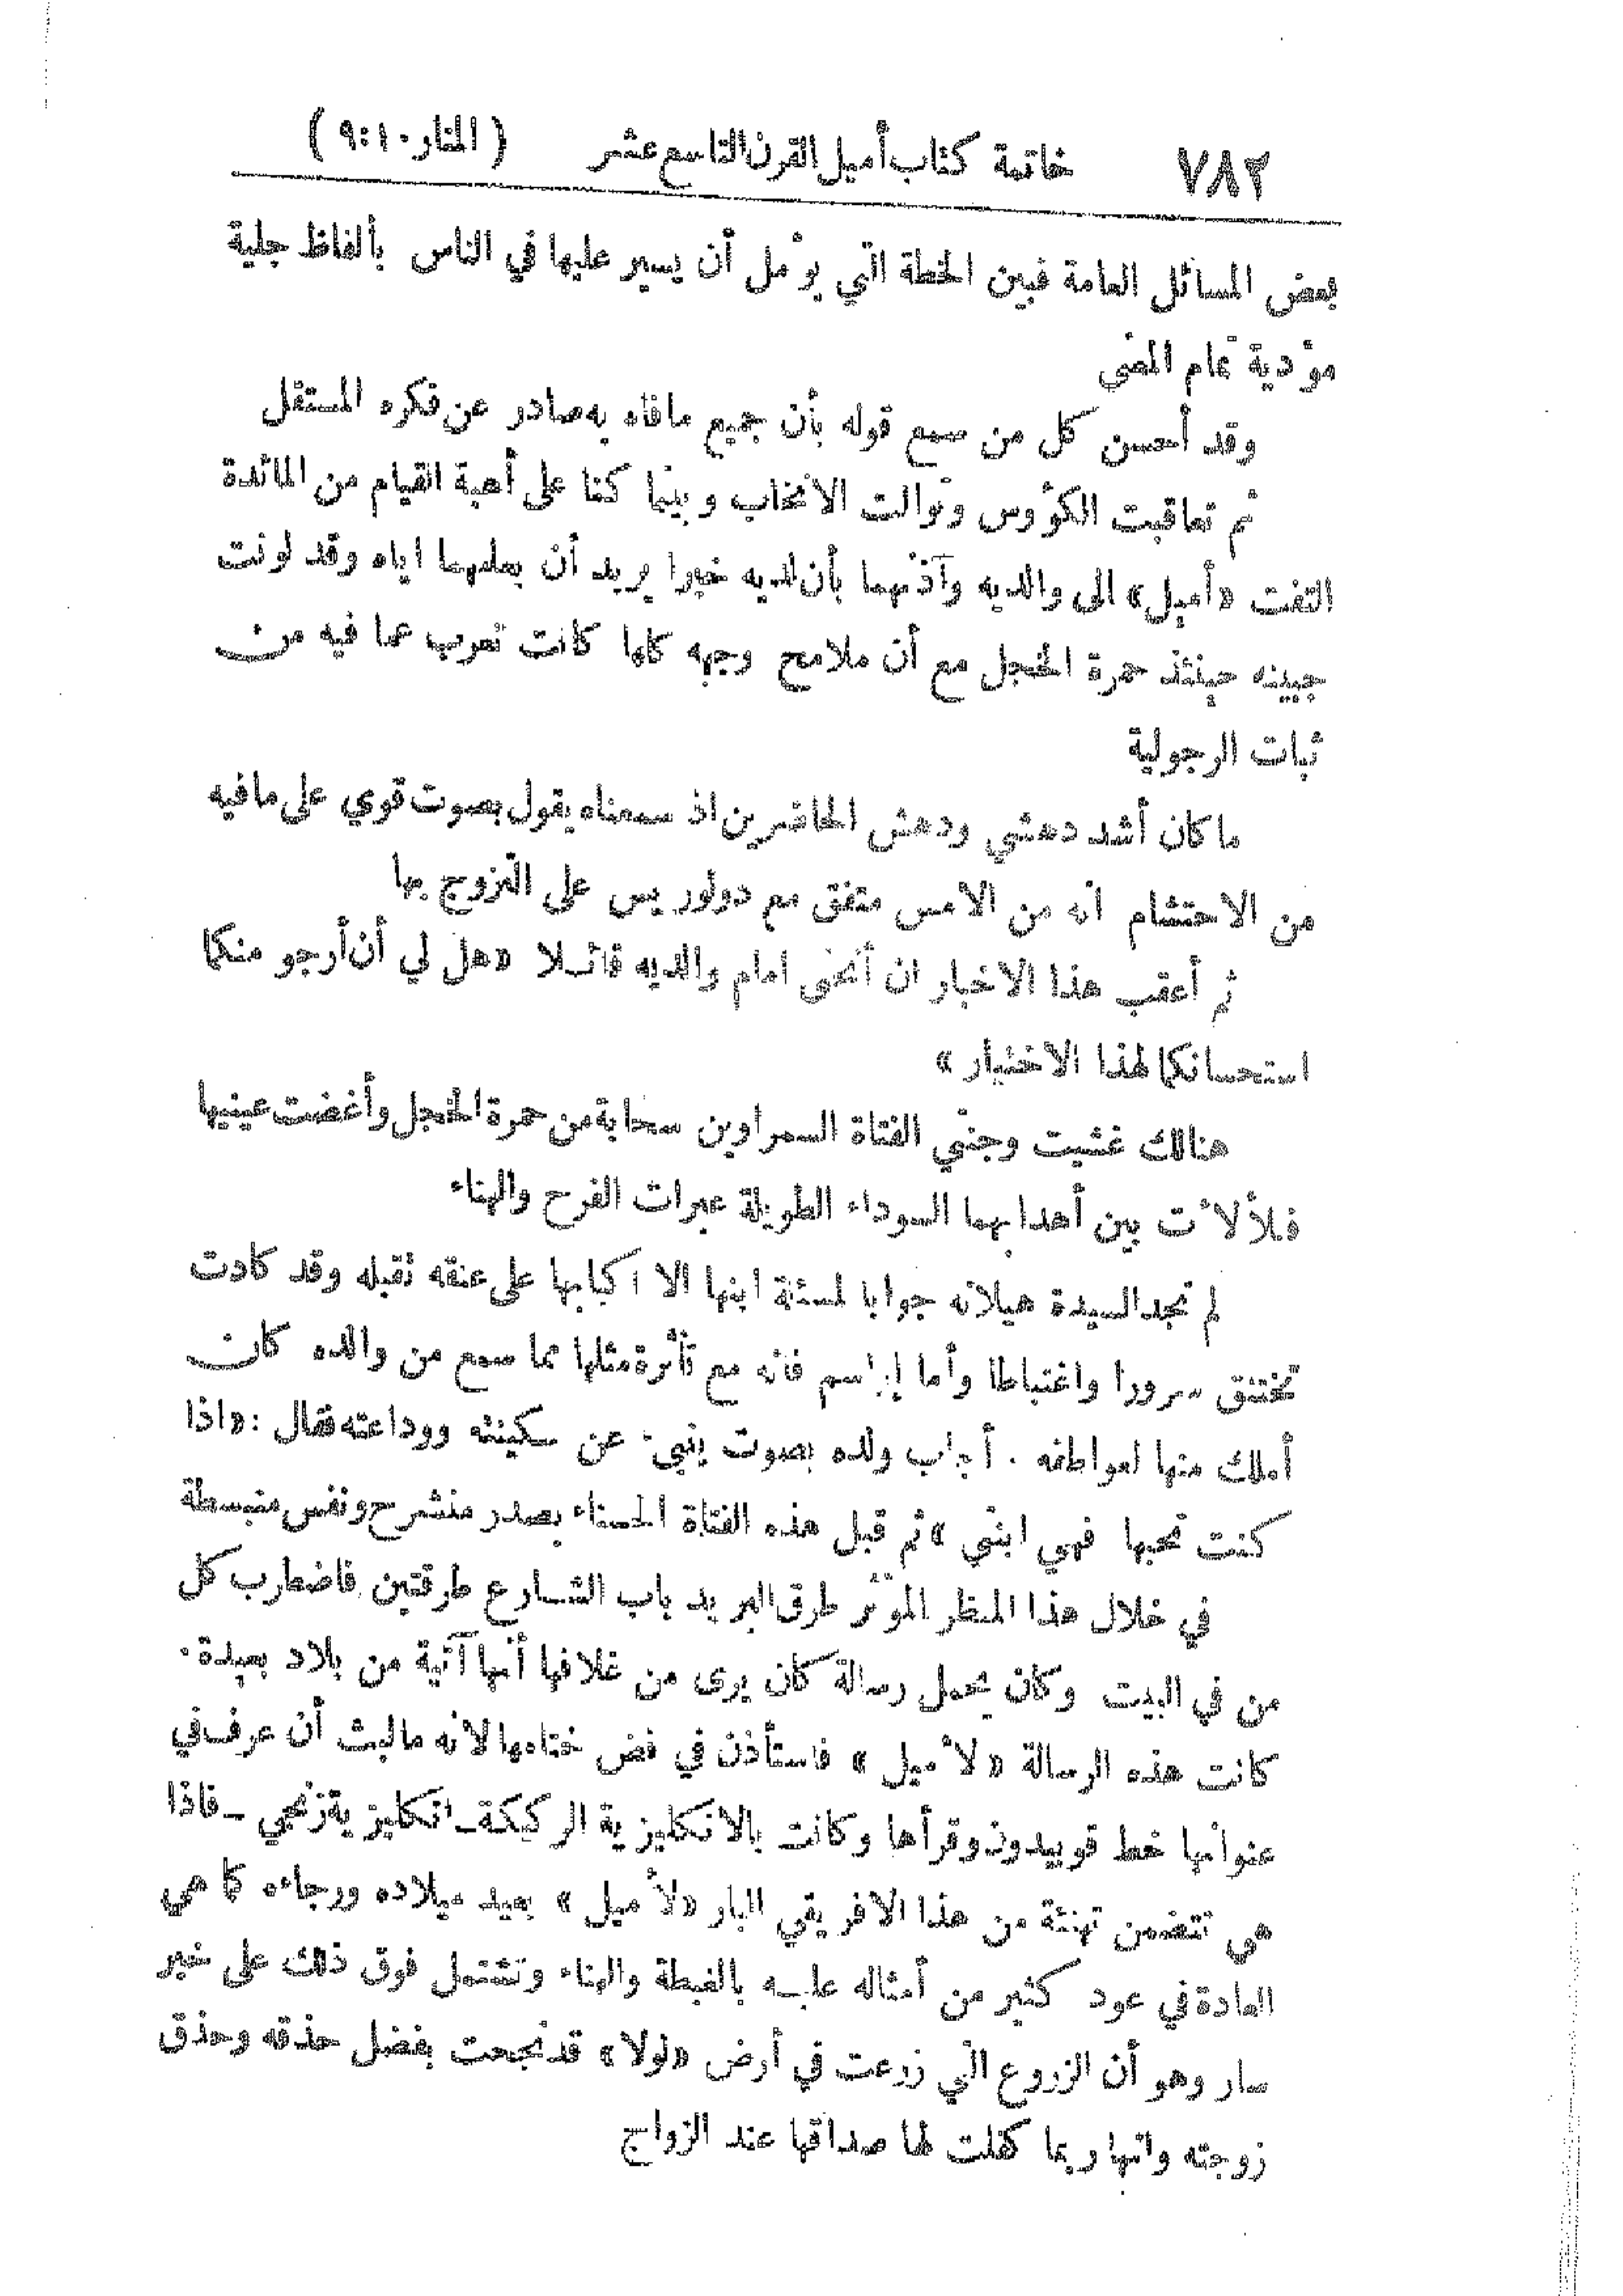 ٧٨٢ خاتمة كتاب أميل القرن التاسع عشر (المنار ١٠:٩)
بعض المسائل العامة فبين الخطة التي يؤمل أن يسير عليها في الناس بألفاظ جلية
مؤدية تمام المعنى
وقد أحسن كل من سمع قوله بأن جميع مافاه به صادر عن فكره المستقل
ثم تعاقبت الكؤوس وتوالت الانخاب وبينما كنا على أهبة القيام من المائدة
التفت «أميل» الى والديه وآذنهما بأن لديه خبرا يريد أن يعلمهما اياه وقد لونت
جبينه حينئذ حمرة الخجل مع أن ملامح وجهه كلها كانت تعرب عما فيه من
ثبات الرجولية
ما كان أشد دهشتي ودهش الحاضرين اذ سمعناه يقول بصوت قوي على مافيه
من الاحتشام انه من الامس متفق مع دولوريس على التزوج بها
ثم أعقب هذا الاخبار ان أنحنى امام والديه قائلا «هل لي أن أرجو منكما
استحسانكما لهذا الاختيار»
هنالك غشيت وجنتي الفتاة السمراوين سحابة من حمرة الخجل وأغضت عينيها
فلألأت بين أهدابهما السوداء الطويلة عبرات الفرح والهناء
لم تجد السيدة هيلانه جوابا لمسئلة ابنها الا اكبابها على عنقه تقبله وقد كادت
تختنق سرورا واغتباطا وأما إراسم فانه مع تأثره مثلها مما سمع من والده كان
أملك منها لعواطفه . أجاب ولده بصوت ينبئ عن سكينته ووداعته فقال : «اذا
كنت تحبها فهي ابنتي» ثم قبل هذه الفتاة الحسناء بصدر منشرح ونفس منبسطة
في خلال هذا المنظر المؤثر طرق البريد باب الشارع طرقتين فاضطرب كل
من في البيت وكان يحمل رسالة كان يرى من غلافها أنها آتية من بلاد بعيدة .
كانت هذه الرسالة «لأميل» فاستأذن في فض ختامها لانه مالبث أن عرف في
عنوانها خط قوبيدون وقرأها وكانت بالانكليزية الركيكة ــ انكليزية زنجي ــ فاذا
هي تتضمن تهنئة من هذا الافريقي البار «لأميل» بعيد ميلاده ورجاءه كما هي
العادة في عود كثير من أمثاله عليه بالغبطة والهناء وتشتمل فوق ذلك على خبر
سار وهو أن الزروع التي زرعت في أرض «لولا» قد نجحت بفضل حذقه وحذق
زوجته وانها ربما كفلت لها صداقها عند الزواج